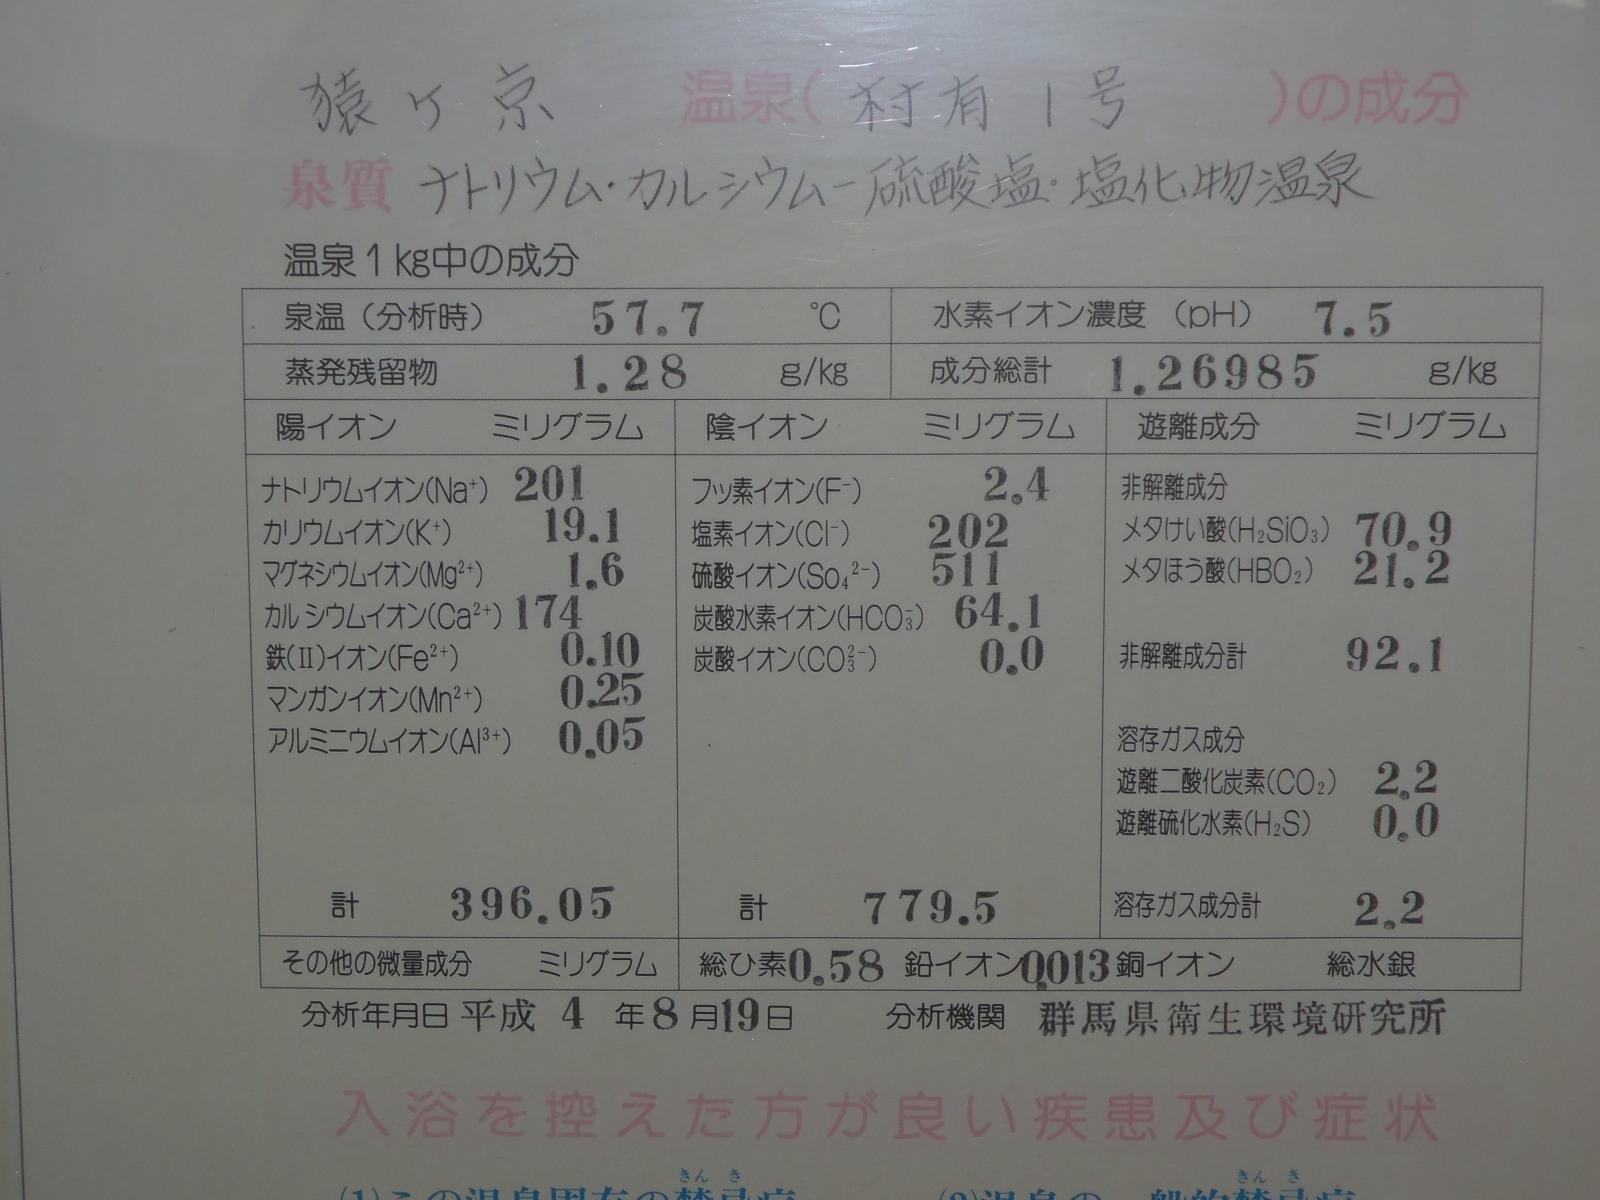 猿ヶ京 温泉(村有1号)の成分
泉質 ナトリウム・カルシウムー硫酸塩・塩化物温泉
温泉1kg中の成分
泉温(分析時) 57.7 ℃ 水素イオン濃度 (pH) 7.5
蒸発残留物 1.28 g/kg 成分総計 1.26985 g/kg
陽イオン ミリグラム 陰イオン ミリグラム 遊離成分 ミリグラム
ナトリウムイオン(Na⁺) 201 フッ素イオン(F⁻) 2.4 非解離成分
カリウムイオン(K⁺) 19.1 塩素イオン(Cl⁻) 202 メタけい酸(H₂SiO₃) 70.9
マグネシウムイオン(Mg²⁺) 1.6 硫酸イオン(So₄²⁻) 511 メタほう酸(HBO₂) 21.2
カルシウムイオン(Ca²⁺) 174 炭酸水素イオン(HCO₃⁻) 64.1
鉄(Ⅱ)イオン(Fe²⁺) 0.10 炭酸イオン(CO₃²⁻) 0.0 非解離成分計 92.1
マンガンイオン(Mn²⁺) 0.25
アルミニウムイオン(Al³⁺) 0.05 溶存ガス成分
遊離二酸化炭素(CO₂) 2.2
遊離硫化水素(H₂S) 0.0
計 396.05 計 779.5 溶存ガス成分計 2.2
その他の微量成分 ミリグラム 総ひ素0.58 鉛イオン0.013 銅イオン 総水銀
分析年月日 平成 4 年 8 月 19 日 分析機関 群馬県衛生環境研究所
入浴を控えた方が良い疾患及び症状